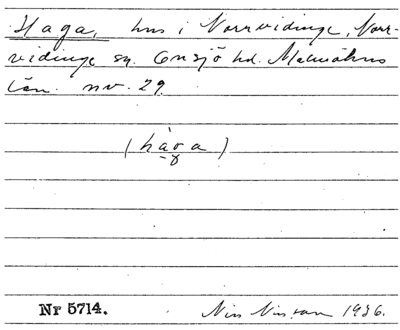 Haga, hus i Norrvidinge, Norr-
vidinge sn. Onsjö hd. Malmöhus
Län. nv. 29.
(hàga)
Nr 5714. Nils Nilsson 1936.